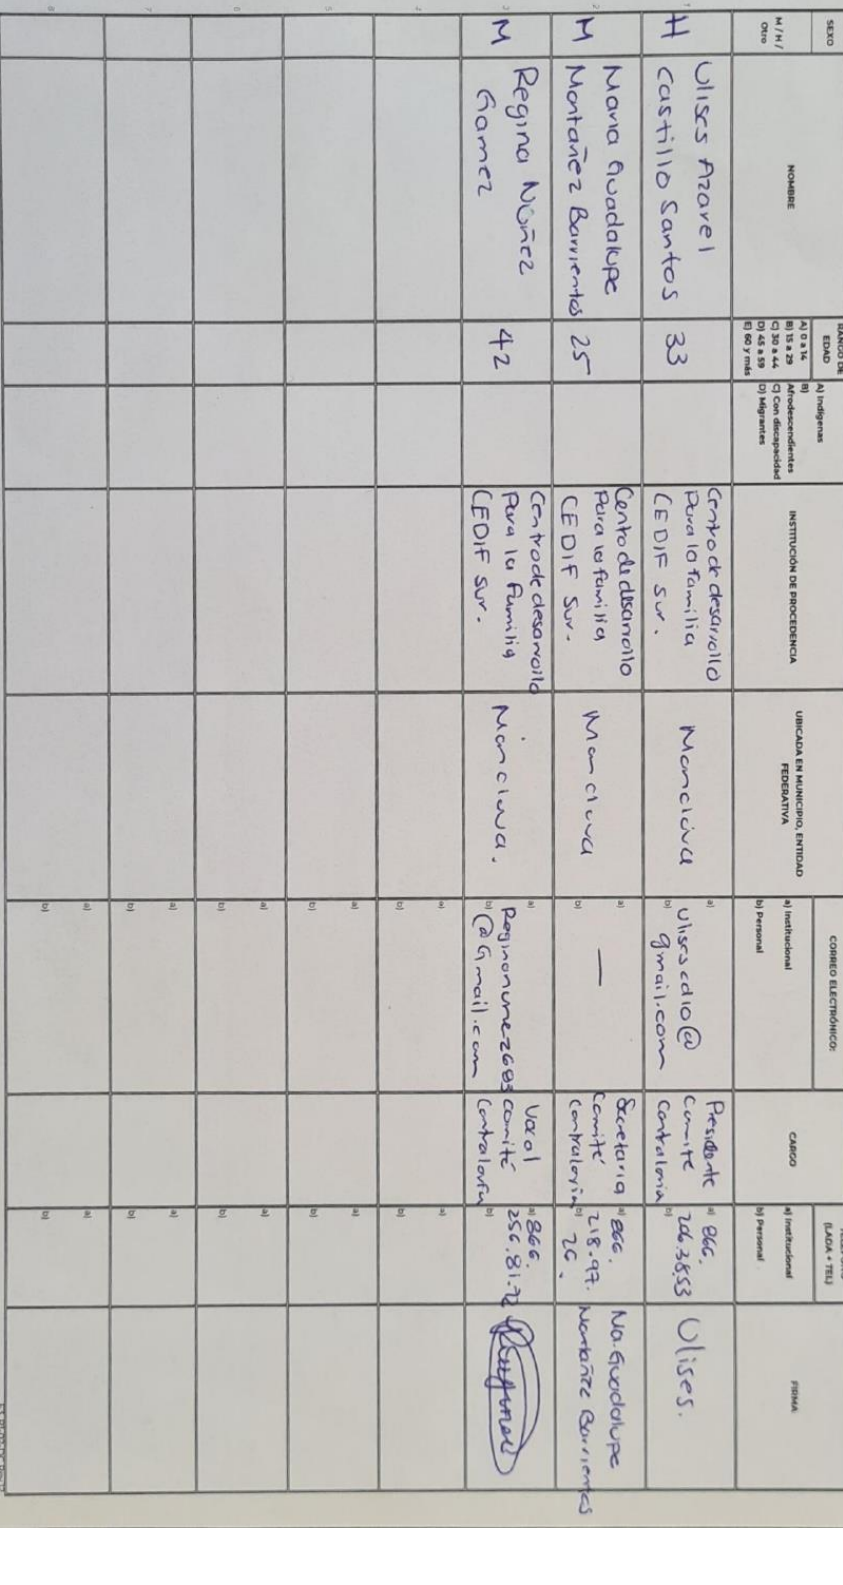 SEXO
M / H /
Otro
NOMBRE
RANGO DE
EDAD
A) 0 a 14
B) 15 a 29
C) 30 a 44
D) 45 a 59
E) 60 y más
A) Indígenas
B)
Afrodescendientes
C) Con discapacidad
D) Migrantes
INSTITUCIÓN DE PROCEDENCIA
UBICADA EN MUNICIPIO, ENTIDAD
FEDERATIVA
CORREO ELECTRÓNICO:
a) Institucional
b) Personal
CARGO
(LADA + TEL)
a) Institucional
b) Personal
FIRMA
1
H
Ulises Azarel
Castillo Santos
33
Centro de desarrollo
Para la familia
CEDIF Sur.
Monclova
a)
b)
Ulises cd10@
gmail.com
Presidente
Comité
Contraloria
a) 866.
b) 206.3853
Ulises.
2
M
Maria Guadalupe
Montañez Barrientos
25
Cento de desarrollo
Para la familia
CEDIF Sur.
Monclova
a)
b)
—
Secretaria
Comité
Contraloria
a) 866.
218.97.
b) 26.
Ma. Guadalupe
Montañez Barrientos
3
M
Regina Núñez
Gamez
42
Centro de desarrollo
Para la familia
CEDIF Sur.
Monclova.
a)
b)
Reginanunez6983
@Gmail.com
Vocal
comité
Contraloria
a) 866.
256.81.72
b)
4
a)
b)
a)
b)
5
a)
b)
a)
b)
6
a)
b)
a)
b)
7
a)
b)
a)
b)
8
a)
b)
a)
b)